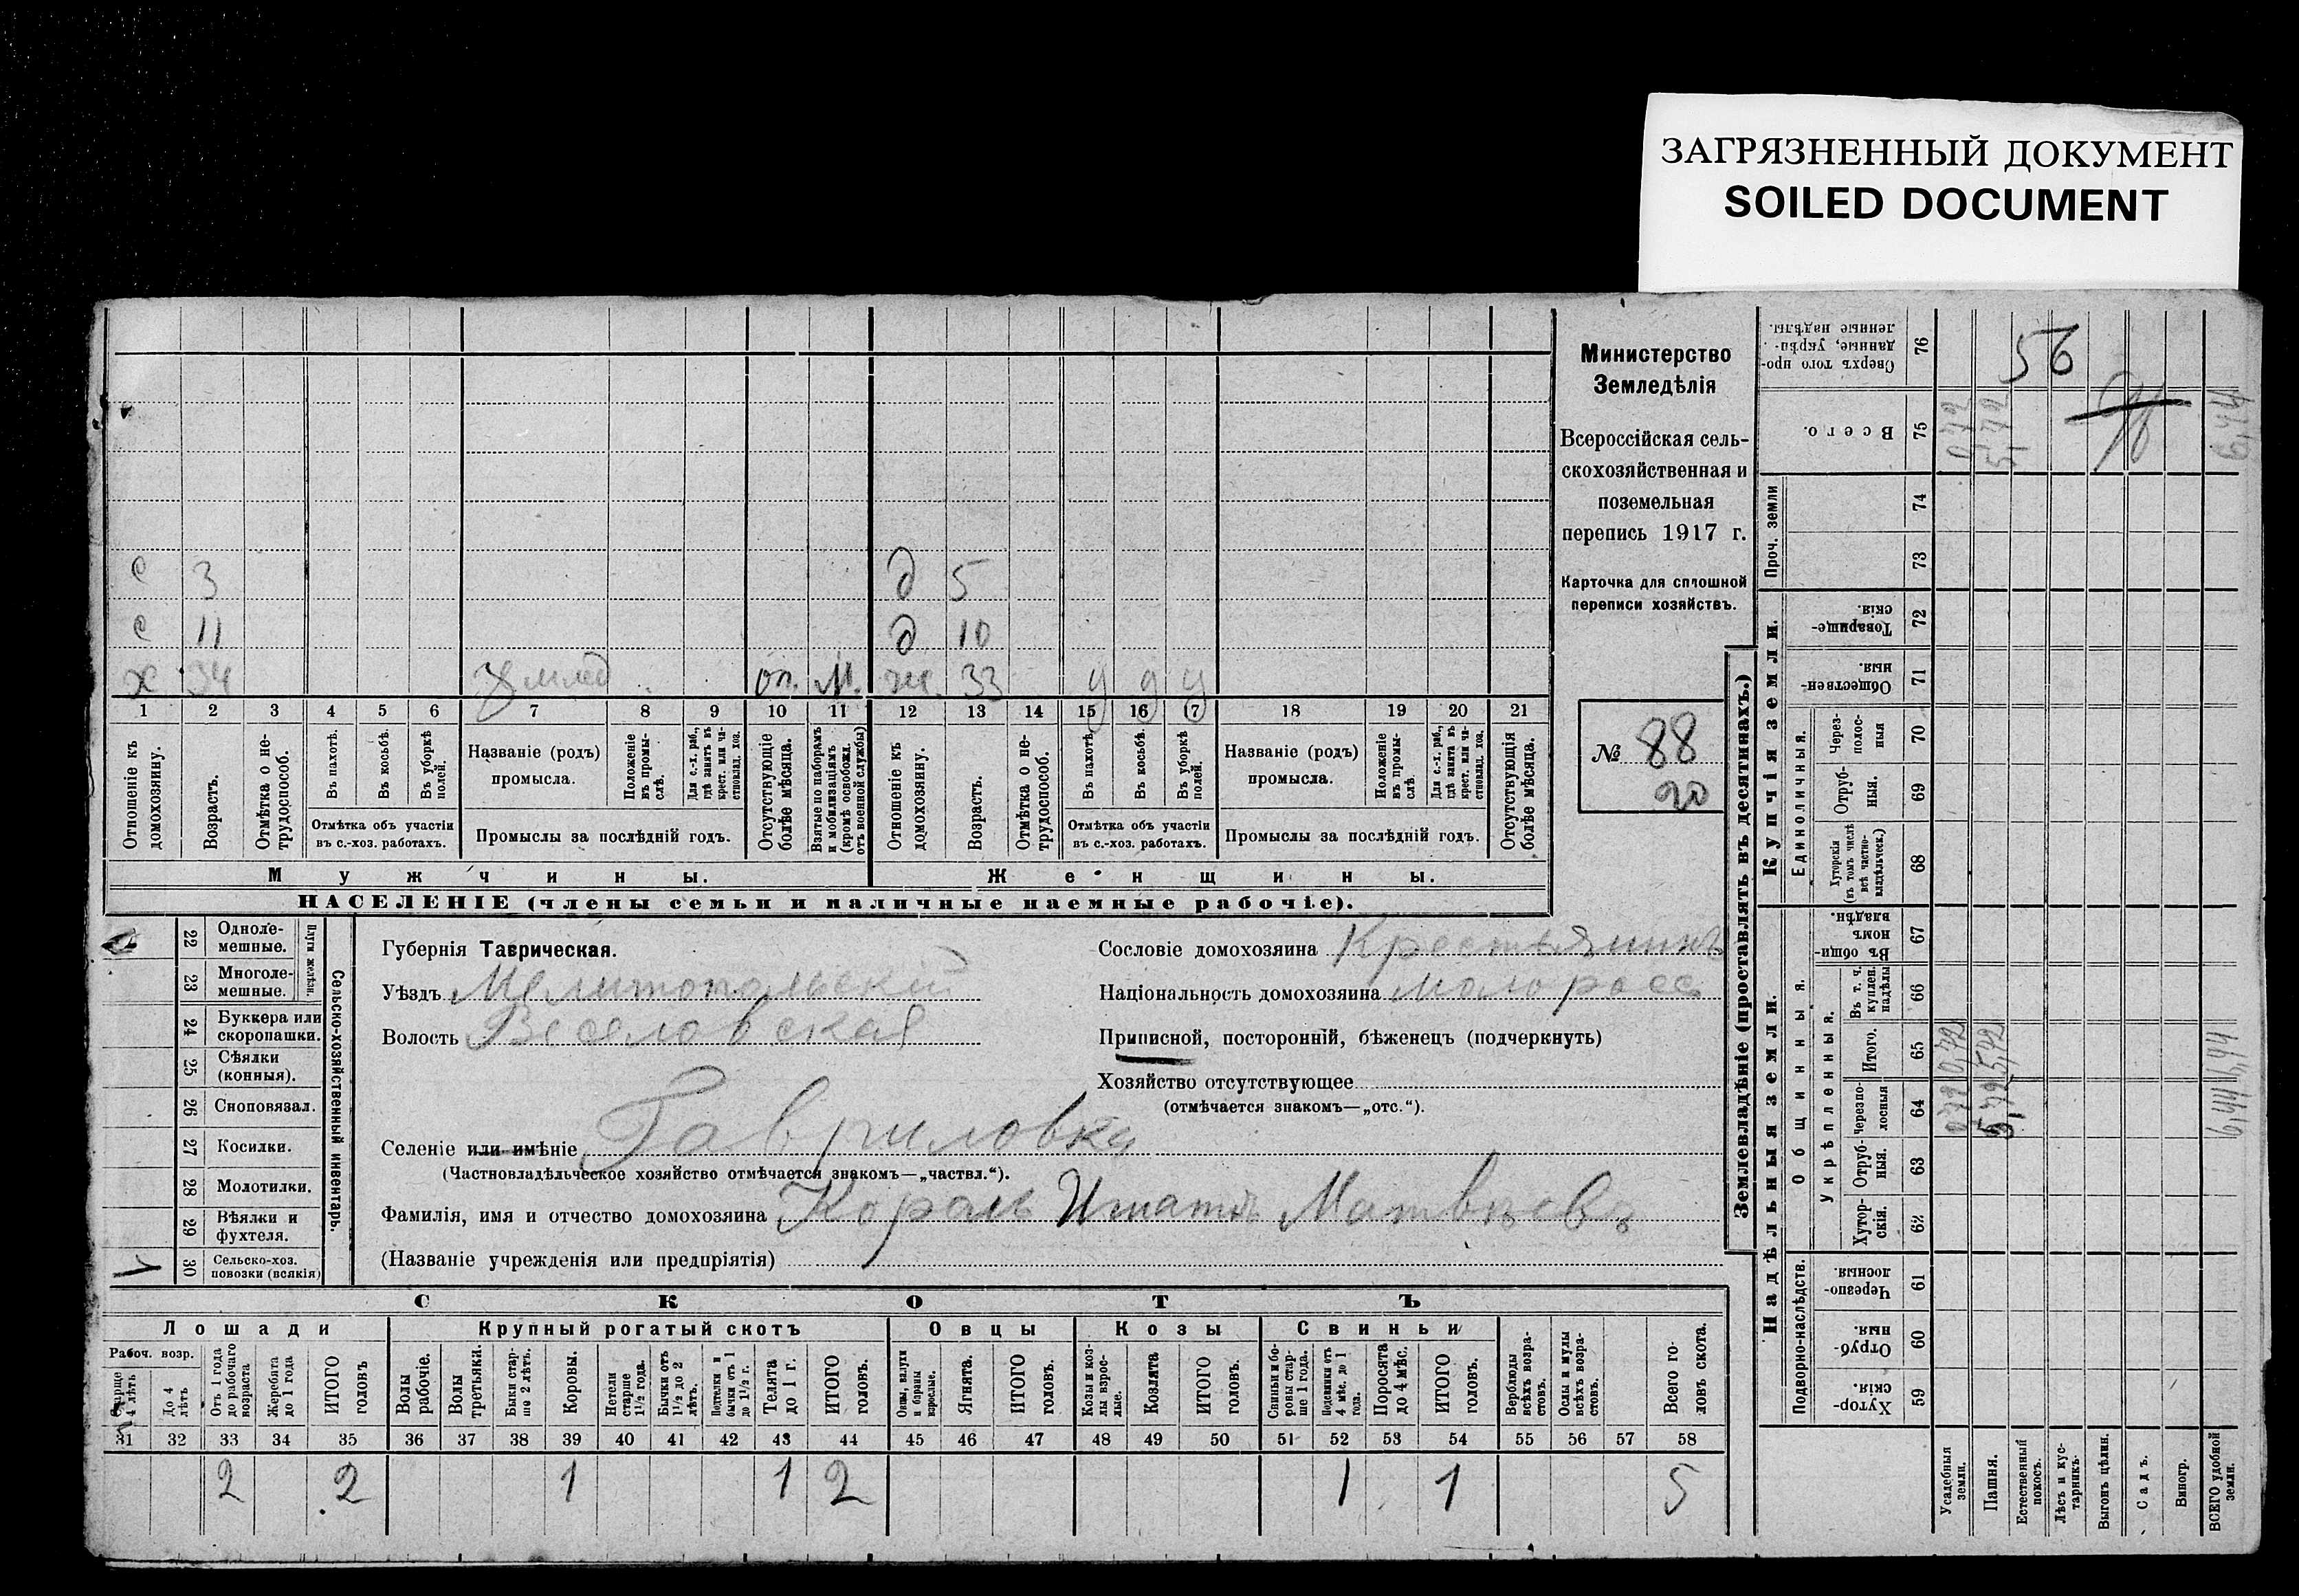 ЗАГРЯЗНЕННЫЙ ДОКУМЕНТ
SOILED DOCUMENT
Министерство
Земледѣлія
Всероссійская сель-
скохозяйственная и
поземельная
перепись 1917 г.
Карточка для сплошной
переписи хозяйствъ.
№ 88
20
с 3 д 5
с 11 д 10
х 34 землед. оп. М. ж. 33 у у у
1 2 3 4 5 6 7 8 9 10 11 12 13 14 15 16 17 18 19 20 21
Отношеніе къ домохозяину.
Возрастъ.
Отмѣтка о не-трудоспособ.
Въ пахотѣ.
Въ косьбѣ.
Въ уборкѣ полей.
Отмѣтка объ участіи
въ с.-хоз. работахъ.
Названіе (родъ)
промысла.
Положеніе въ промы-слѣ.
Для с.-х. раб., гдѣ занятъ въ крест. или ча-стновлад. хоз.
Промыслы за послѣдній годъ.
Отсутствующіе болѣе мѣсяца.
Взятые по наборамъ и мобилизаціямъ (кромѣ освобожд. отъ военной службы)
Отношеніе къ домохозяину.
Возрастъ.
Отмѣтка о не-трудоспособ.
Въ пахотѣ.
Въ косьбѣ.
Въ уборкѣ полей.
Отмѣтка объ участіи
въ с.-хоз. работахъ.
Названіе (родъ)
промысла.
Положеніе въ промы-слѣ.
Для с.-х. раб., гдѣ занята въ крест. или ча-стновлад. хоз.
Промыслы за послѣдній годъ.
Отсутствующія болѣе мѣсяца.
Мужчины. Женщины.
НАСЕЛЕНІЕ (члены семьи и наличные наемные рабочіе).
Сельско-хозяйственный инвентарь.
Плуги желѣзн.
22 Одноле-мешные.
23 Многоле-мешные.
24 Буккера или скоропашки.
25 Сѣялки (конныя).
26 Сноповязал.
27 Косилки.
28 Молотилки.
29 Вѣялки и фухтеля.
30 Сельско-хоз. повозки (всякія)
1
Губернія Таврическая.
Уѣздъ Мелитопольскій
Волость Веселовская
Сословіе домохозяина Крестьянинъ
Національность домохозяина малоросс
Приписной, посторонній, бѣженецъ (подчеркнуть)
Хозяйство отсутствующее
(отмѣчается знакомъ—„отс.“).
Селеніе или имѣніе Гавриловка
(Частновладѣльческое хозяйство отмѣчается знакомъ—„частвл.“).
Фамилія, имя и отчество домохозяина Король Игнатъ Матвѣевъ
(Названіе учрежденія или предпріятія)
СКОТЪ
Лошади Крупный рогатый скотъ Овцы Козы Свиньи
Рабоч. возр.
Старше 4 лѣтъ
До 4 лѣтъ
Отъ 1 года до рабочаго возраста
Жеребята до 1 года
ИТОГО головъ
Волы рабочіе.
Волы третьяки.
Быки стар-ше 2 лѣтъ.
Коровы.
Нетели старше 1½ года.
Бычки отъ 1½ до 2 лѣтъ.
Подтелки и бычки отъ 1 до 1½ г.
Телята до 1 г.
ИТОГО головъ.
Овцы, валухи и бараны взрослые.
Ягнята.
ИТОГО головъ.
Козы и коз-лы взрос-лые.
Козлята
ИТОГО головъ.
Свиньи и бо-ровы стар-ше 1 года.
Подсвинки отъ 4 мѣс. до 1 года.
Поросята до 4 мѣс.
ИТОГО головъ.
Верблюды всѣхъ возра-стовъ.
Ослы и мулы всѣхъ возра-стовъ.
Всего го-ловъ скота.
31 32 33 34 35 36 37 38 39 40 41 42 43 44 45 46 47 48 49 50 51 52 53 54 55 56 57 58
2 2 1 1 2 1 1 5
Землевладѣніе (проставлять въ десятинахъ.)
Надѣльныя земли. Купчія земли.
Проч. земли
Общинныя. Единоличныя.
Укрѣпленныя.
Подворно-наслѣдств.
76 Сверхъ того про-данные, укрѣп-ленные надѣлы.
56
75 Всего.
0,72 5,72 6,44
74
73
72 Товарище-скія.
71 Обществен-ныя.
70 Через-полос-ныя
69 Отруб-ныя.
68 Хуторскія (въ томъ числѣ всѣ частно-владѣльческ.)
67 Въ общи-номъ владѣн.
66 Въ т. ч. куплен. надѣлы
65 Итого.
0,72 5,72 6,44
64 Черезпо-лосныя
0,72 5,72 6,44
63 Отруб-ныя.
62 Хутор-скія.
61 Черезпо-лосныя
60 Отруб-ныя.
59 Хутор-скія.
Усадебныя земли.
Пашня.
Естественный покосъ.
Лѣсъ и кус-тарникъ.
Выгонъ цѣлин.
Садъ.
Виногр.
ВСЕГО удобной земли.